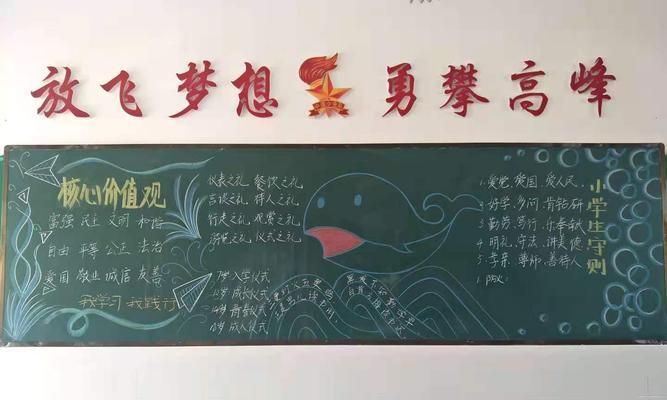 放飞梦想 勇攀高峰
核心价值观
富强 民主 文明 和谐
自由 平等 公正 法治
爱国 敬业 诚信 友善
我学习 我践行
仪表之礼 餐饮之礼
言谈之礼 待人之礼
行走之礼 观赏之礼
游览之礼 仪式之礼
7岁 入学仪式
10岁 成长仪式
14岁 青春仪式
18岁 成人仪式
小学生守则
1. 爱党、爱国、爱人民
好学、多问、肯钻研
3 勤劳、笃行、乐奉献
4 明礼、守法、讲美德
5 孝亲、尊师、善待人